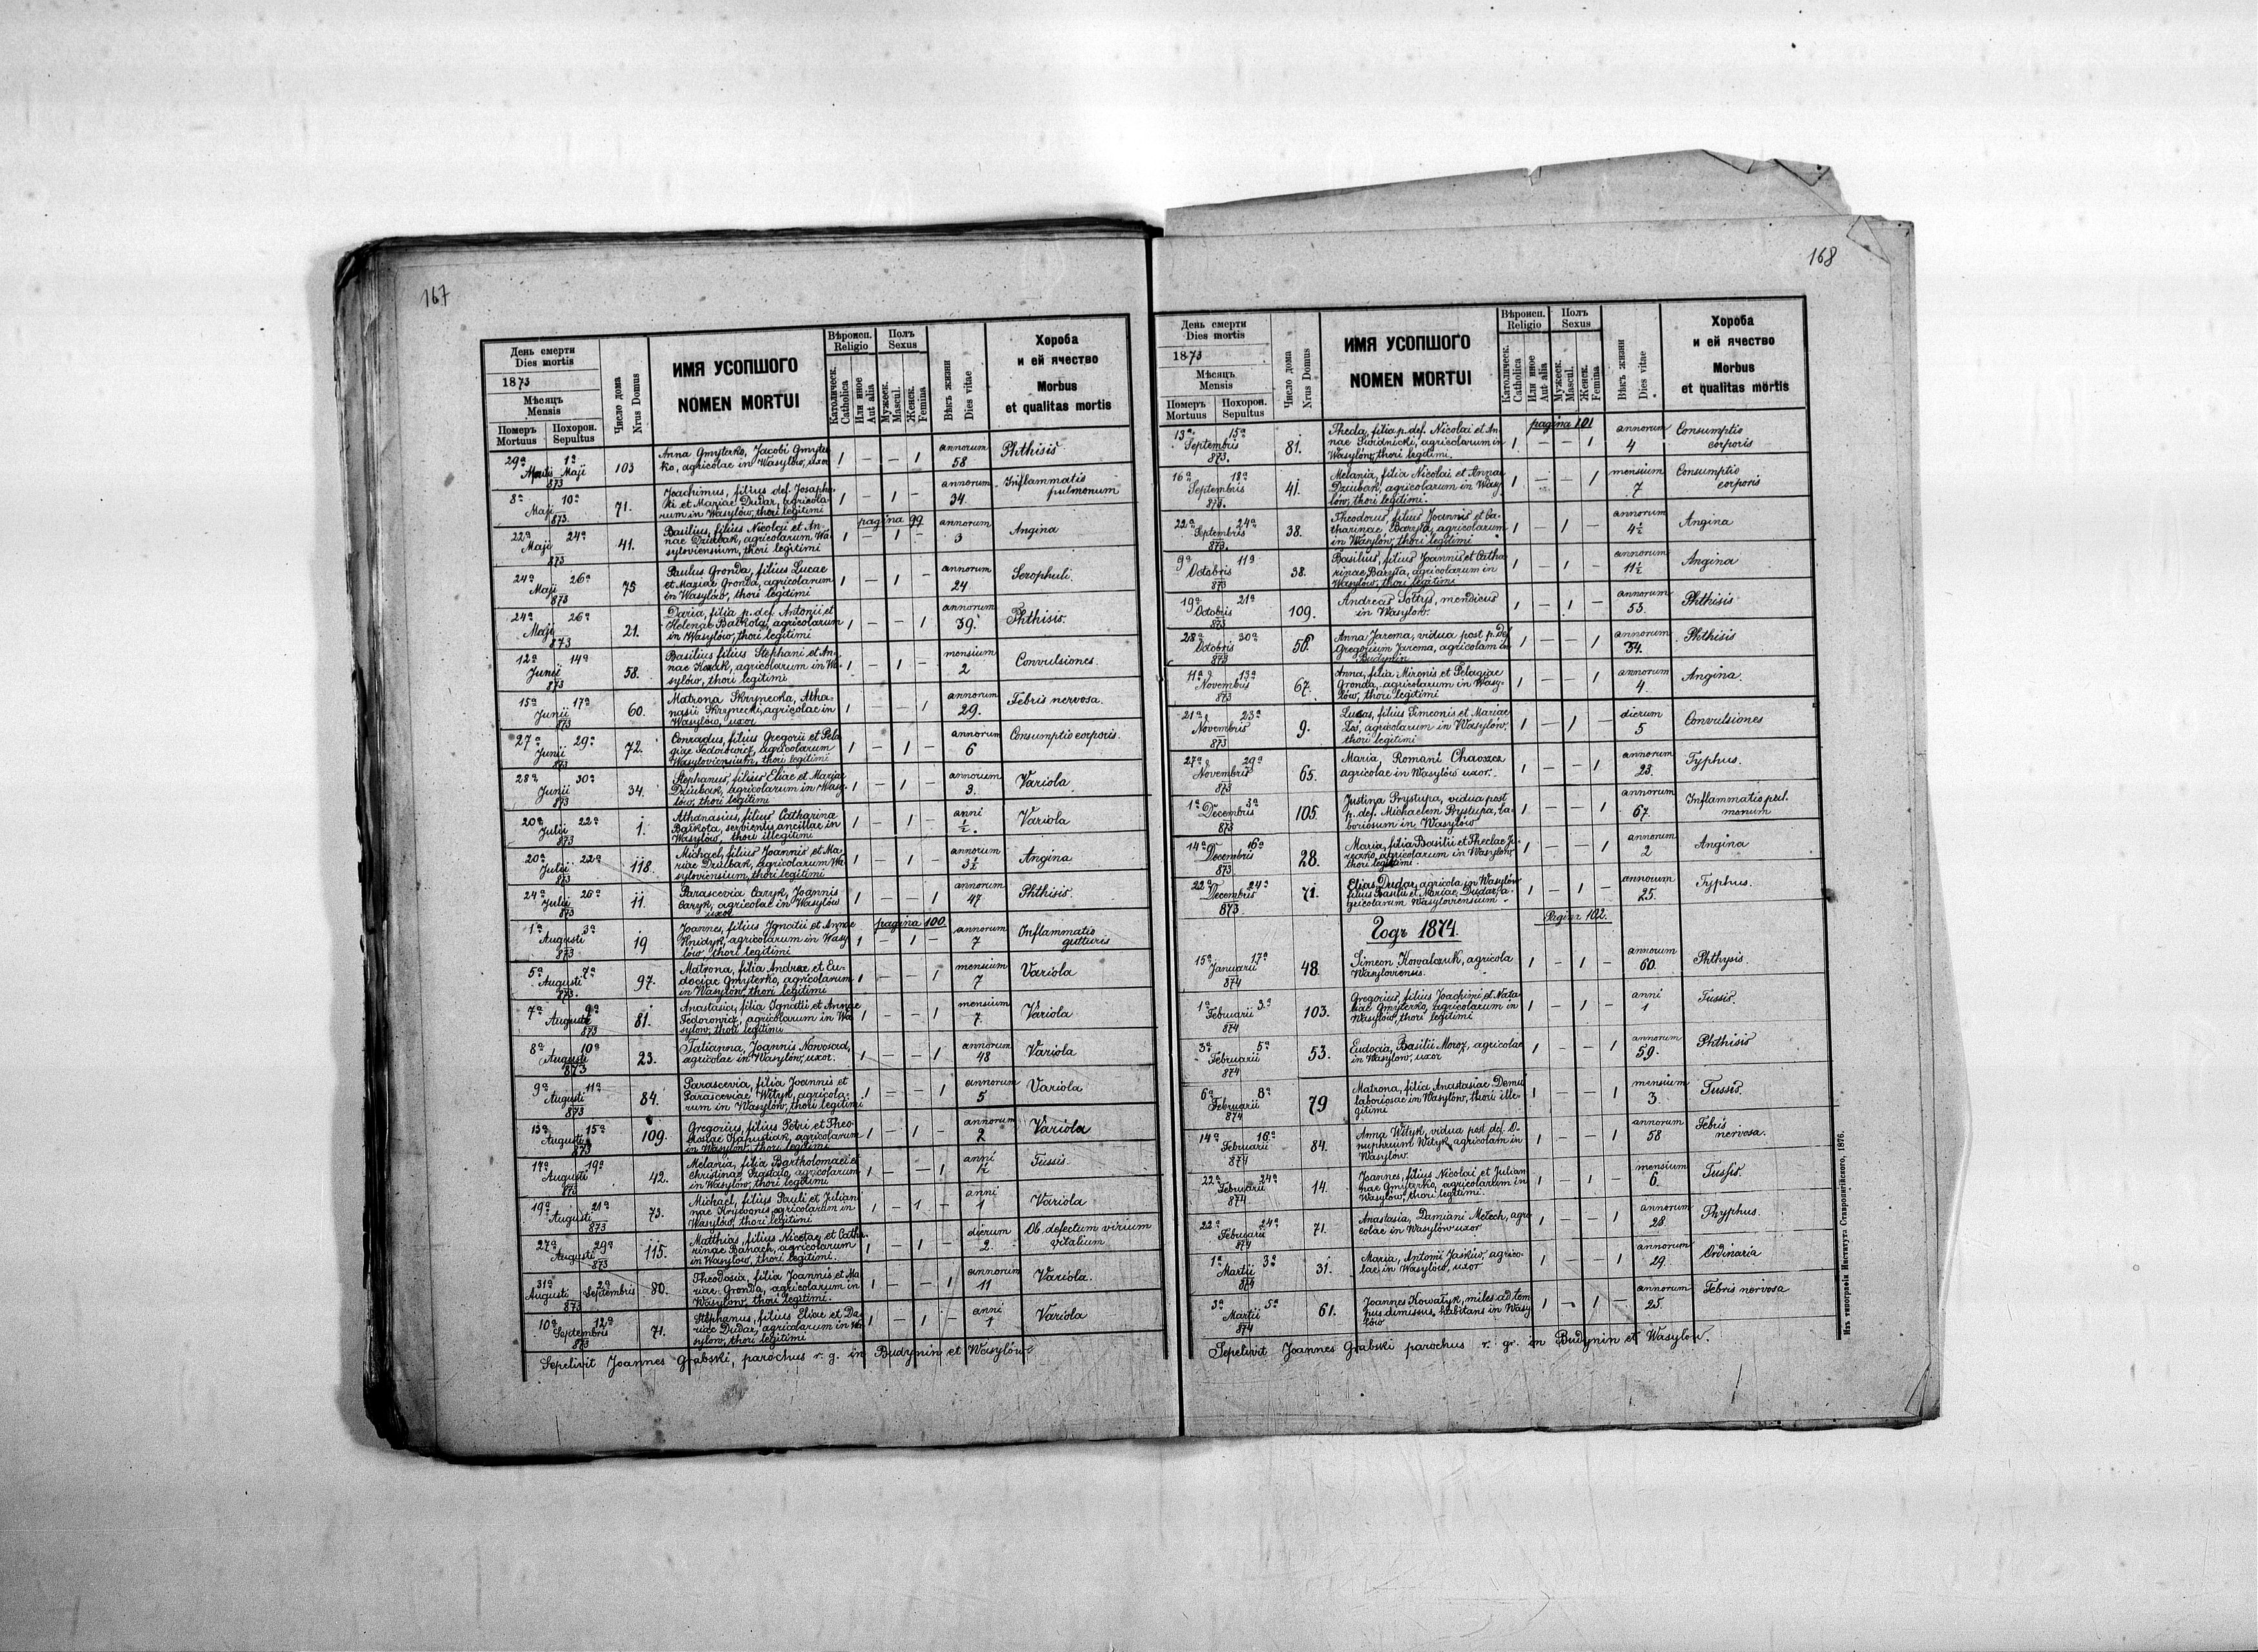 167
День смерти
Dies mortis
1873
Мѣсяцъ
Mensis
Померъ
Mortuus
Похорон.
Sepultus
Число дома
Nrus Domus
ИМЯ УСОПШОГО
NOMEN MORTUI
Вѣроисп.
Religio
Католическ.
Catholica
Или иное
Aut alia
Полъ
Sexus
Мужеск.
Mascul.
Женск.
Femina
Вѣкъ жизни
Dies vitae
Хороба
и ей ячество
Morbus
et qualitas mortis
29a 1a Maji 873 103 Anna Gmyterko, Jacobi Gmyter
ko, agricolae in Wasylów, uxor 1 — — 1 annorum 58 Phthisis
8a Maji 10a 873 71. Joachimus, filius def. Josapha
ti et Mariae Dudar, agricola-
rum in Wasylów, thori legitimi 1 — 1 — annorum 34. Inflammatio
pulmonum
pagina 99
22a Maji 24a 873 41. Basilius, filius Nicolai et An-
nae Dziubak, agricolarum Wa
syloviensium, thori legitimi 1 — 1 — annorum 3 Angina
24a Maji 26a 873 75 Paulus Gronda, filius Lucae
et Mariae Gronda, agricolarum
in Wasylów, thori legitimi 1 — 1 — annorum 24 Scrophuli.
24a Maji 26a 873 21. Daria, filia p. def. Antonii et
Helenae Bałkota, agricolarum
in Wasylów, thori legitimi 1 — — 1 annorum 39. Phthisis.
12a Junii 14a 873 58. Basilius filius Stephani et An-
nae Kozak, agricolarum in Wa-
sylów, thori legitimi 1 — 1 — mensium 2 Convulsiones.
15a Junii 17a 873 60. Matrona Skrynecka, Atha-
nasii Skrynecki, agricolae in
Wasylów, uxor 1 — — 1 annorum 29. Febris nervosa.
27a Junii 29a 873 72. Conradus, filius Gregorii et Pela
giae Fedorowicz, agricolarum
Wasyloviensium, thori legitimi 1 — 1 — annorum 6 Consumptio corporis.
28a Junii 30a 873 34. Stephanus, filius Eliae et Mariae
Dziubak, agricolarum in Wasy-
lów, thori legitimi 1 — 1 — annorum 3. Variola
20a Julii 22a 873 1. Athanasius, filius Catharina
Bałkota, servientis ancillae in
Wasylów, thori illegitimi 1 — 1 — anni ½. Variola
20a Julii 22a 873 118. Michael, filius Joannis et Ma
riae Dziubak, agricolarum Wa
syloviensium, thori legitimi 1 — 1 — annorum 3½ Angina
24a Julii 26a 873 11. Parascevia Caryk, Joannis
Caryk, agricolae in Wasylów
uxor 1 — — 1 annorum 47 Phthisis.
pagina 100
1a Augusti 3a 873 19 Joannes, filius Ignatii et Annae
Hnidyk, agricolarum in Wasy
lów, thori legitimi 1 — 1 — annorum 7 Inflammatio
gutturis
5a Augusti 7a 873. 97. Matrona, filia Andreae et Eu-
dociae Gmyterko, agricolarum
in Wasylów, thori legitimi 1 — — 1 mensium 7 Variola
7a Augusti 9a 873 81. Anastasia, filia Ignatii et Annae
Fedorowicz, agricolarum in Wa
sylów, thori legitimi 1 — — 1 mensium 7. Variola
8a Augusti 10a 873 23. Tatianna, Joannis Nowosad,
agricolae in Wasylów, uxor. 1 — — 1 annorum 48 Variola
9a Augusti 11a 873 84. Parascevia, filia Joannis et
Parasceviae Wityk, agricola-
rum in Wasylów, thori legitimi 1 — — 1 annorum 5 Variola
13a Augusti 15a 873 109. Gregorius, filius Petri et Theo-
dosiae Kapustiak, agricolarum
in Wasylów, thori legitimi 1 — 1 — annorum 2 Variola
17a Augusti 19a 873 42. Melania, filia Bartholomaei et
Christinae agricolarum
in Wasylów, thori legitimi 1 — — 1 anni ½ Tussis.
19a Augusti 21a 873 73. Michael, filius Pauli et Julian
nae agricolarum in
Wasylów, thori legitimi 1 — 1 — anni 1 Variola
27a Augusti 29a 873 115. Matthias, filius Nicolae et Catha
rinae Banach, agricolarum
in Wasylów, thori legitimi. 1 — 1 — dierum 2. Ob defectum virium
vitalium
31a Augusti 2a Septembris 873 80. Theodosia, filia Joannis et Ma
riae Gronda, agricolarum in
Wasylów, thori legitimi. 1 — — 1 annorum 11 Variola.
10a Septembris 12a 873 71. Stephanus, filius Eliae et Da-
riae Dudar, agricolarum in Wa
sylów, thori legitimi 1 — 1 — anni 1 Variola
Sepelivit Joannes Grabski, parochus r. g. in Budynin et Wasylów
168
День смерти
Dies mortis
1873
Мѣсяцъ
Mensis
Померъ
Mortuus
Похорон.
Sepultus
Число дома
Nrus Domus
ИМЯ УСОПШОГО
NOMEN MORTUI
Вѣроисп.
Religio
Католическ.
Catholica
Или иное
Aut alia
Полъ
Sexus
Мужеск.
Mascul.
Женск.
Femina
Вѣкъ жизни
Dies vitae
Хороба
и ей ячество
Morbus
et qualitas mortis
pagina 101
13a Septembris 15a 873. 81. Theda, filia p. def. Nicolai et An-
nae Swidnicki, agricolarum in
Wasylów, thori legitimi. 1 — — 1 annorum 4 Consumptio
corporis
16a Septembris 18a 873. 41. Melania, filia Nicolai et Annae
Dziubak, agricolarum in Wasy
lów, thori legitimi. 1 — — 1 mensium 7 Consumptio
corporis
22a Septembris 24a 873. 38. Theodorus, filius Joannis et Ca-
tharinae Baryła, agricolarum
in Wasylów, thori legitimi 1 — 1 — annorum 4½ Angina
9a Octobris 11a 873 38. Basilius, filius Joannis et Catha
rinae Baryła, agricolarum in
Wasylów, thori legitimi 1 — 1 — annorum 11½ Angina
19a Octobris 21a 873 109. Andreas Sołtys, mendicus
in Wasylow. 1 — 1 — annorum 53. Phthisis
28a Octobris 30a 873 Anna Jarema, vidua post p. def
Gregorium Jarema, agricolam in
Budynin 1 — — 1 annorum 34. Phthisis
11a Novembris 13a 873 67. Anna, filia Mironis et Pelagiae
Gronda, agricolarum in Wasy-
lów, thori legitimi 1 — — 1 annorum 4. Angina.
21a Novembris 23a 873 9. Lucas, filius Simeonis et Mariae
Łoś, agricolarum in Wasylów
thori legitimi 1 — 1 — dierum 5 Convulsiones
27a Novembris 29a 873 65. Maria, Romani Charoza
agricolae in Wasylów uxor. 1 — — 1 annorum 23. Typhus.
1a Decembris 3a 873 105. Justina Prystupa, vidua post
p. def. Michaelem Prystupa, la-
boriosum in Wasylów 1 — — 1 annorum 67. Inflammatio pul.
monum
14a Decembris 16a 873 28. Maria, filia Basilii et Theclae
agricolarum in Wasylów
thori legitimi 1 — — 1 annorum 2 Angina
22 Decembris 24a 873 71. Elias Dudar, agricola in Wasylów
filius Basilii et Mariae Dudar, a-
gricolarum Wasyloviensium 1 — 1 — annorum 25. Typhus.
Годъ 1874.
Pagina 102.
15a Januarii 17a 874 48. Simeon Kowalczuk, agricola
Wasyloviensis. 1 — 1 — annorum 60. Phthysis.
1a Februarii 3a 874 103. Gregorius, filius Joachimi et Nata
liae Gmyterko, agricolarum in
Wasylów, thori legitimi 1 — 1 — anni 1 Tussis.
3a Februarii 5a 874 53. Eudocia, Basilii Moroz, agricolae
in Wasylów, uxor 1 — — 1 annorum 59. Phthisis
6a Februarii 8a 874 79 Matrona, filia Anastasiae Demu
laboriosae in Wasylów, thori ille-
gitimi 1 — — 1 mensium 3 Tussis.
14a Februarii 16a 874 84. Anna Wityk, vidua post def. O-
nuphrium Wityk, agricolam in
Wasylów. 1 — — 1 annorum 58 Febris
nervosa.
22a Februarii 24a 874 14. Joannes, filius Nicolai et Julian
nae Gmyterko, agricolarum in
Wasylów, thori legitimi. 1 — 1 — mensium 6. Tussis.
22a Februarii 24a 874 71. Anastasia, Damiani Melech, agri
colae in Wasylów uxor 1 — — 1 annorum 28 Thyphus.
1a Martii 3a 874 31. Maria, Antonii Jaśkiw, agrico-
lae in Wasylów, uxor 1 — — 1 annorum 29. Ordinaria
3a Martii 5a 874 61. Joannes Kowałyk, miles ad tem
pus dimissus, habitans in Wasy
lów 1 — 1 — annorum 25. Febris nervosa
Sepelivit Joannes Grabski parochus r. gr. in Budynin et Wasylow.
Изъ типографіи Института Ставропигійского, 1876.